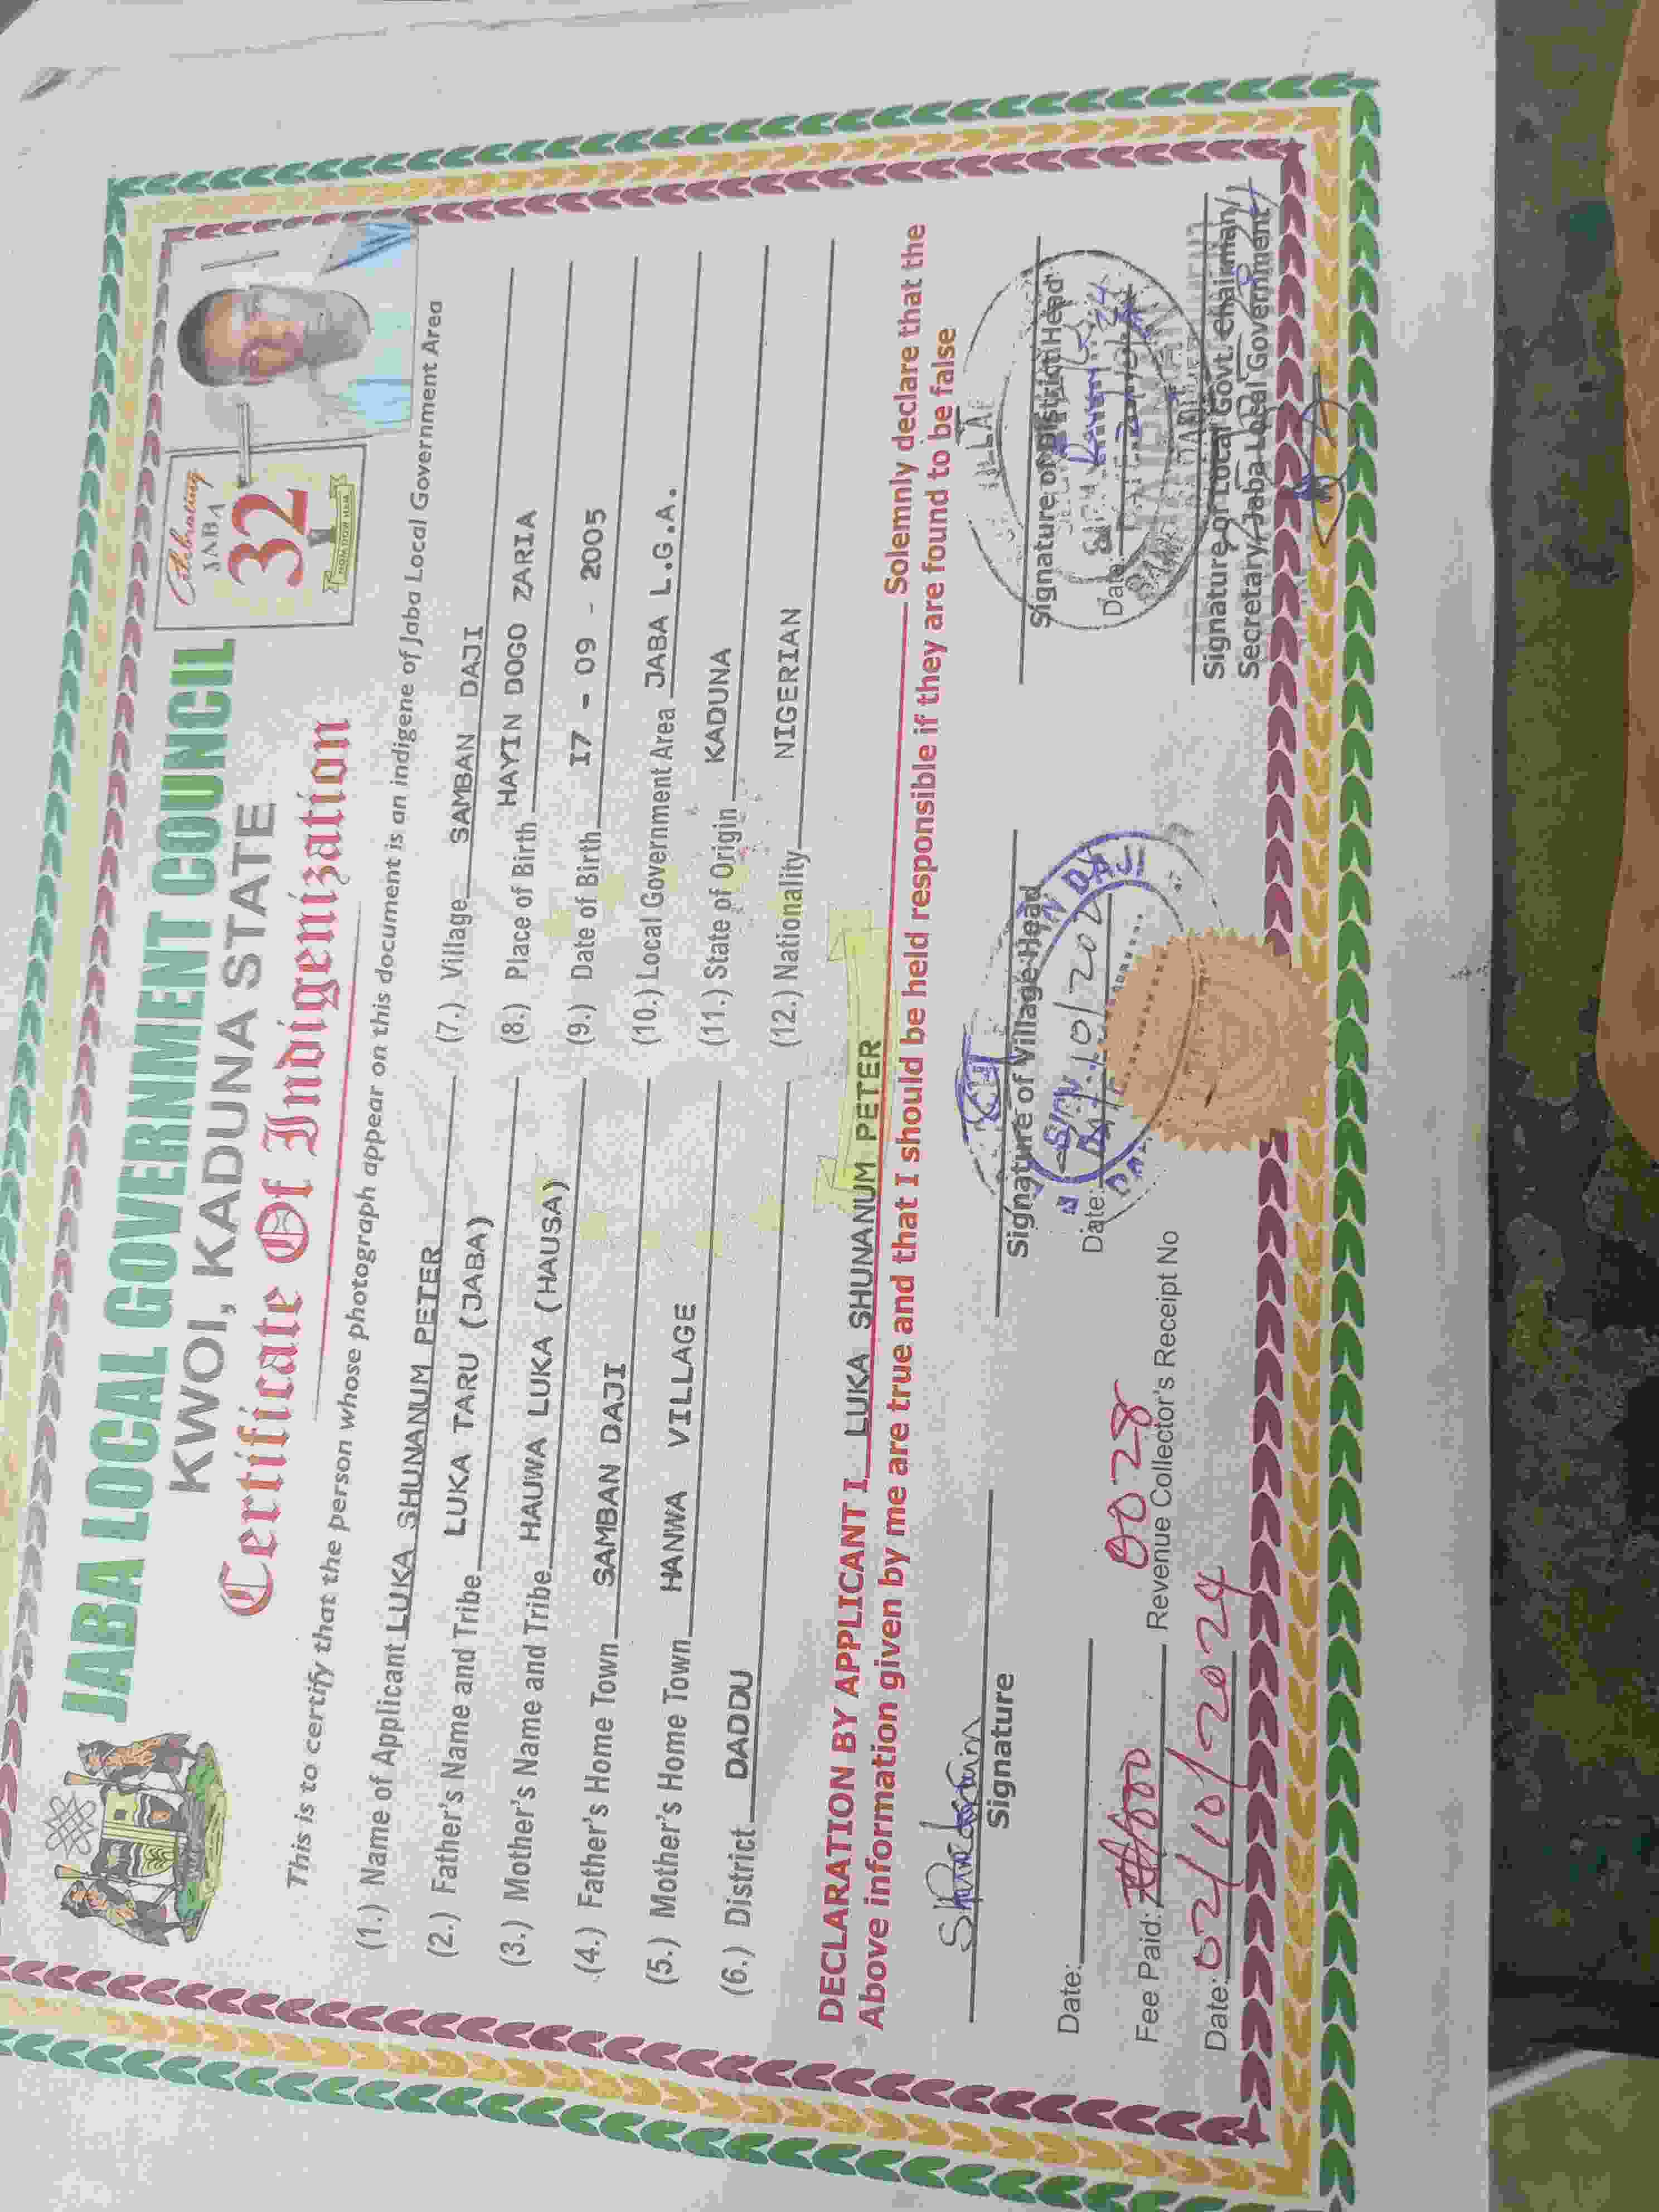 JABA LOCAL GOVERNMENT COUNCIL
KWOI, KADUNA STATE
Certificate Of Indigenization
Celebrating
JABA
32
This is to certify that the person whose photograph appear on this document is an indigene of Jaba Local Government Area
(1.) Name of Applicant LUKA SHUNANUM PETER
(2.) Father's Name and Tribe LUKA TARU (JABA)
(3.) Mother's Name and Tribe HAUWA LUKA (HAUSA)
(4.) Father's Home Town SAMBAN DAJI
(5.) Mother's Home Town HANWA VILLAGE
(6.) District DADDU
(7.) Village SAMBAN DAJI
(8.) Place of Birth HAYIN DOGO ZARIA
(9.) Date of Birth I7 - 09 - 2005
(10.) Local Government Area JABA L.G.A.
(11.) State of Origin KADUNA
(12.) Nationality NIGERIAN
DECLARATION BY APPLICANT I LUKA SHUNANUM PETER Solemnly declare that the
Above information given by me are true and that I should be held responsible if they are found to be false
Signature
Date:
Fee Paid: ₦1000 Revenue Collector's Receipt No 0028
Date: 02/10/2024
Signature of Village Head
SIGN
Date:
Signature of District Head
Date:
Signature of Local Govt. Chairman/
Secretary, Jaba Local Government